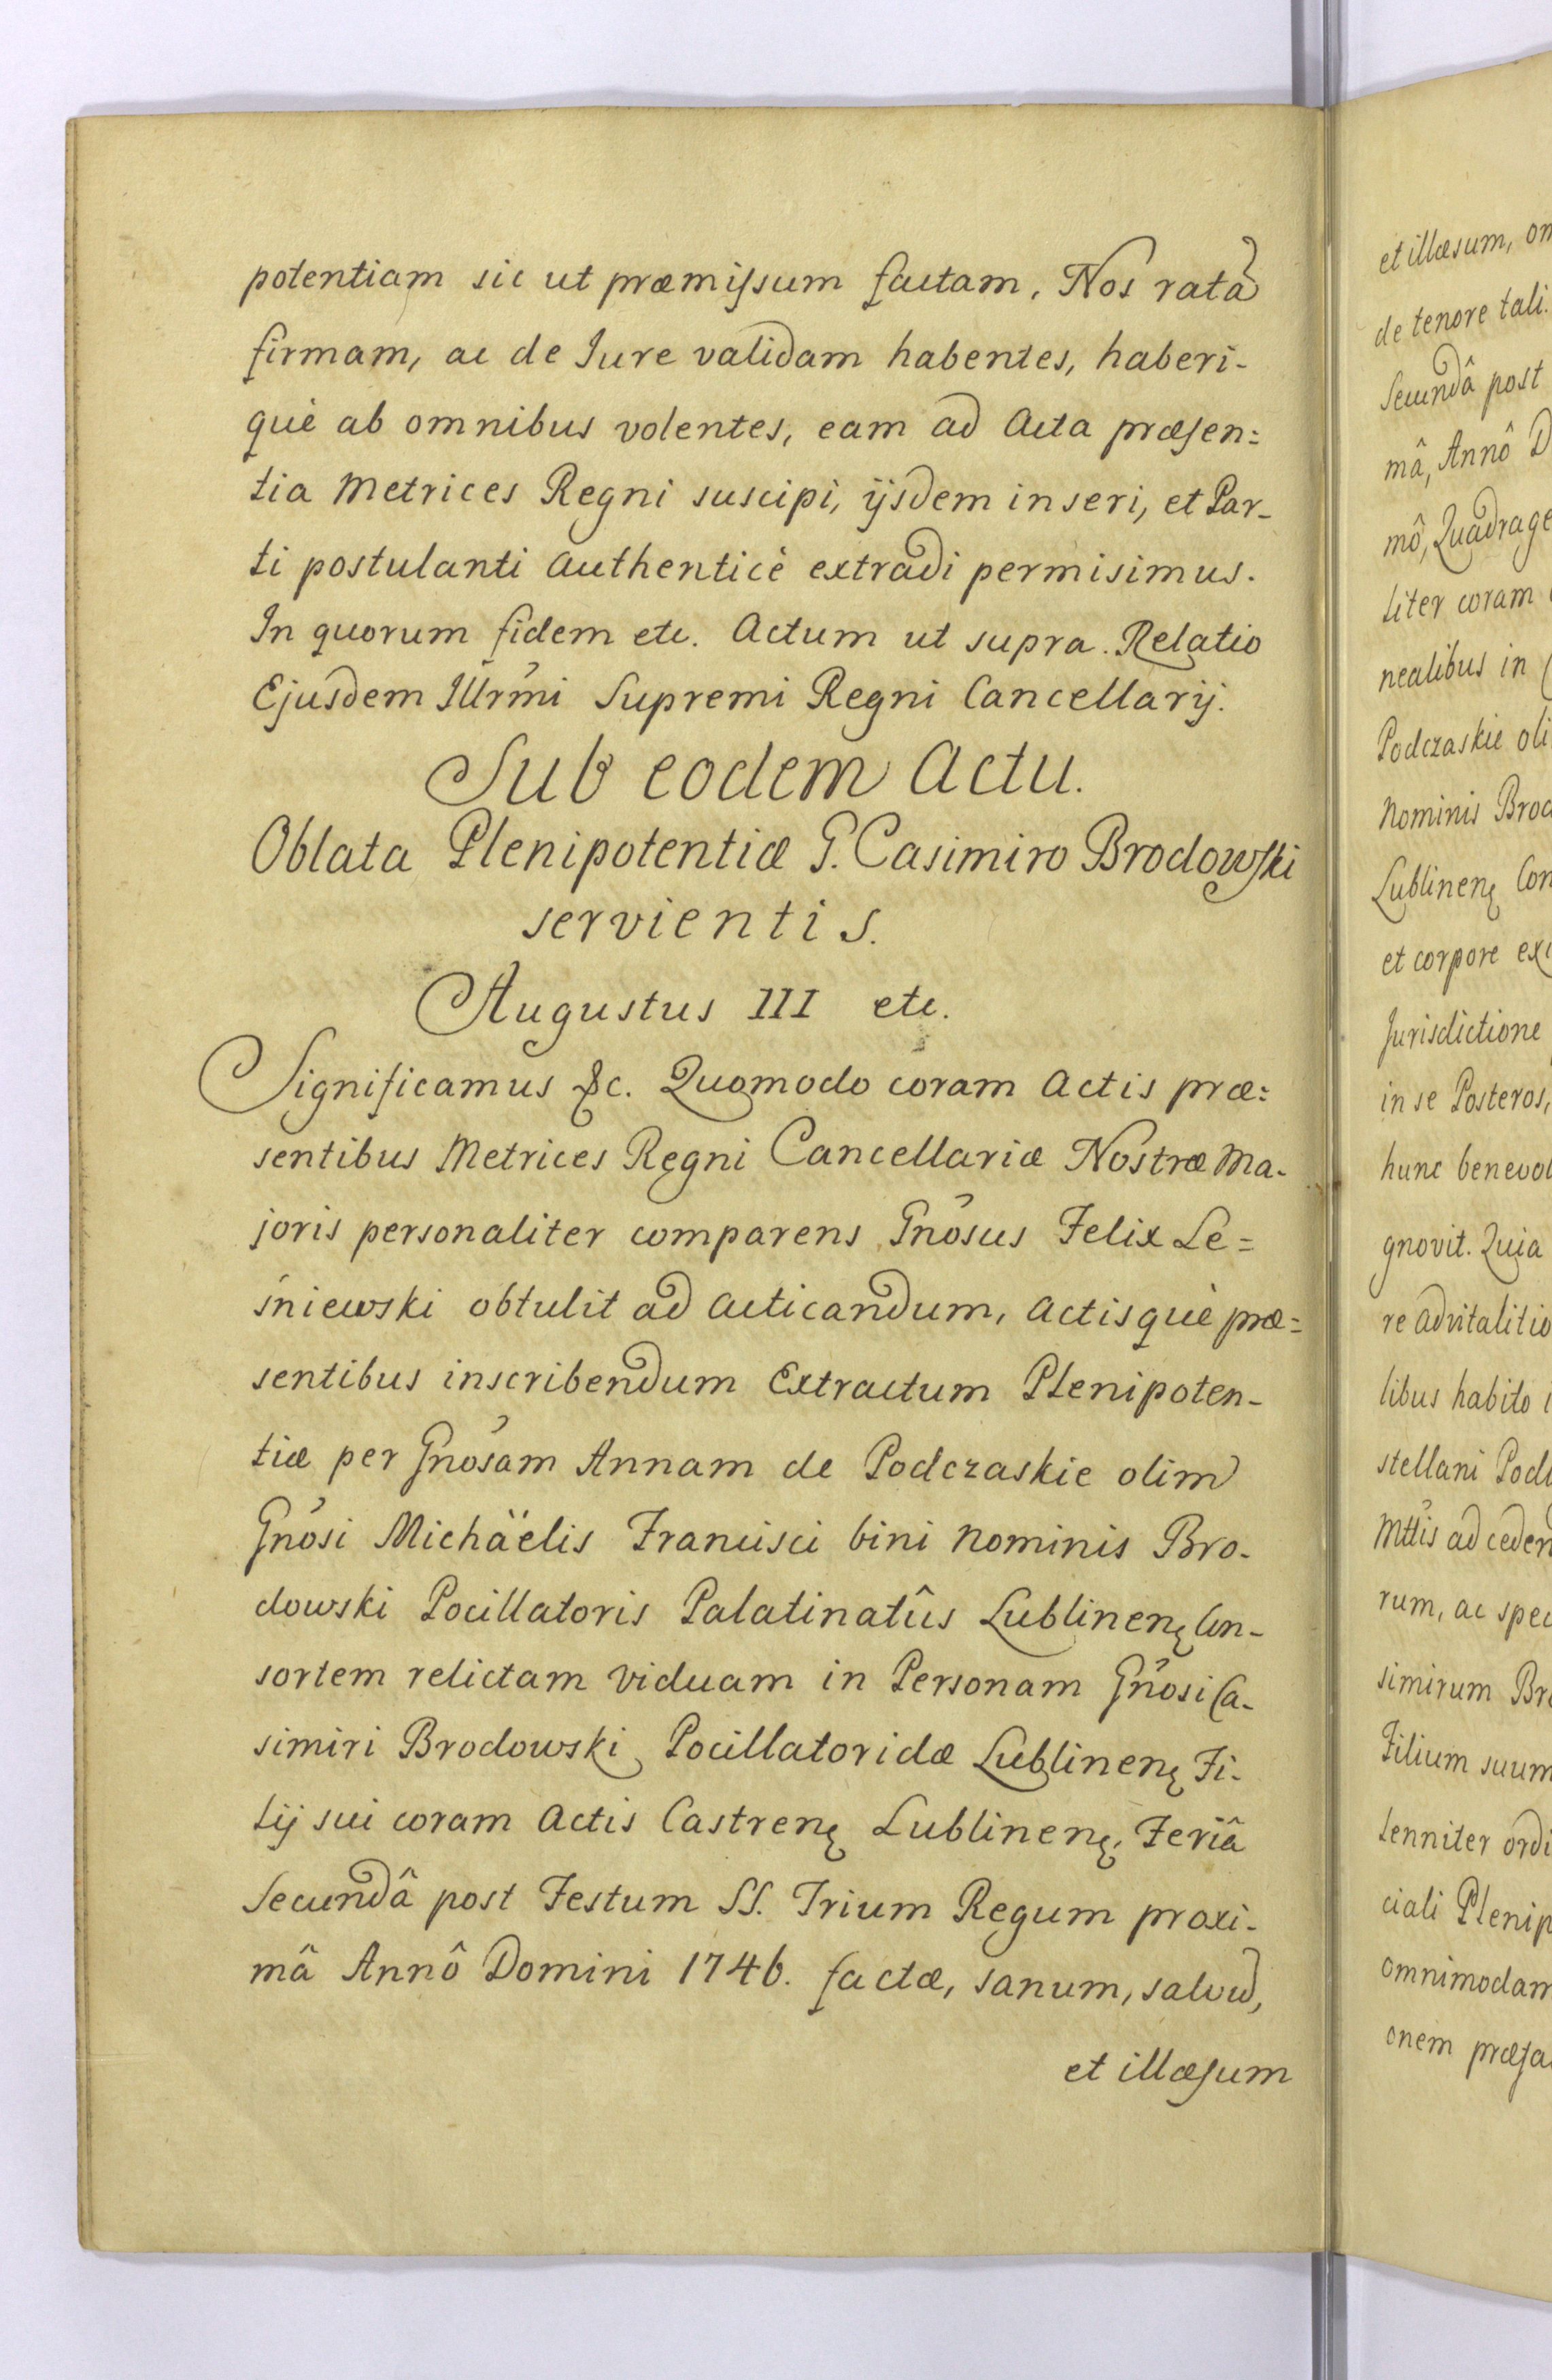 potentiam sic ut præmissum factam, Nos ratã
firmam, ac de Iure validam habentes, haberi-
què ab omnibus volentes, eam ad Acta præsen=
tia Metrices Regni suscipi, ijsdem inseri, et Par-
ti postulanti authenticè extradi permisimus.
In quorum fidem etc. Actum ut supra. Relatio
Ejusdem Illrmi Supremi Regni Cancellarij.
Sub eodem Actu.
Oblata Plenipotentiæ G. Casimiro Brodowski
servientis.
Augustus III etc.
Significamus &c. Quomodo coram Actis præ=
sentibus Metrices Regni Cancellariæ Nostræ Ma-
joris personaliter comparens Gnosus Felix Le=
śniewski obtulit ad acticandum, Actisquè præ=
sentibus inscribendum Extractum Plenipoten-
tiæ per Gnosam Annam de Podczaskie olim
Gnosi Michäelis Francisci bini Nominis Bro-
dowski Pocillatoris Palatinatûs Lublinenę Con-
sortem relictam Viduam in Personam Gnosi Ca-
simiri Brodowski Pocillatoridæ Lublinenę Fi-
lij sui coram Actis Castrenę Lublinenę, Feriâ
Secundâ post Festum SS. Trium Regum proxi-
mâ Annô Domini 1746. factæ, sanum, salvũ,
et illæsum
et illæsum,
de tenore tali.
Secundâ post
mâ, Annô
mô,
liter coram
nealibus in
Podczaskie
Nominis
Lublinenę
et corpore
Jurisdictione
in se Posteros,
hunc
gnovit. Quia
re advitalitio
libus habito
stellani
Mttis ad
rum, ac
simirum
Filium suum
lenniter
ciali
omnimodam
onem